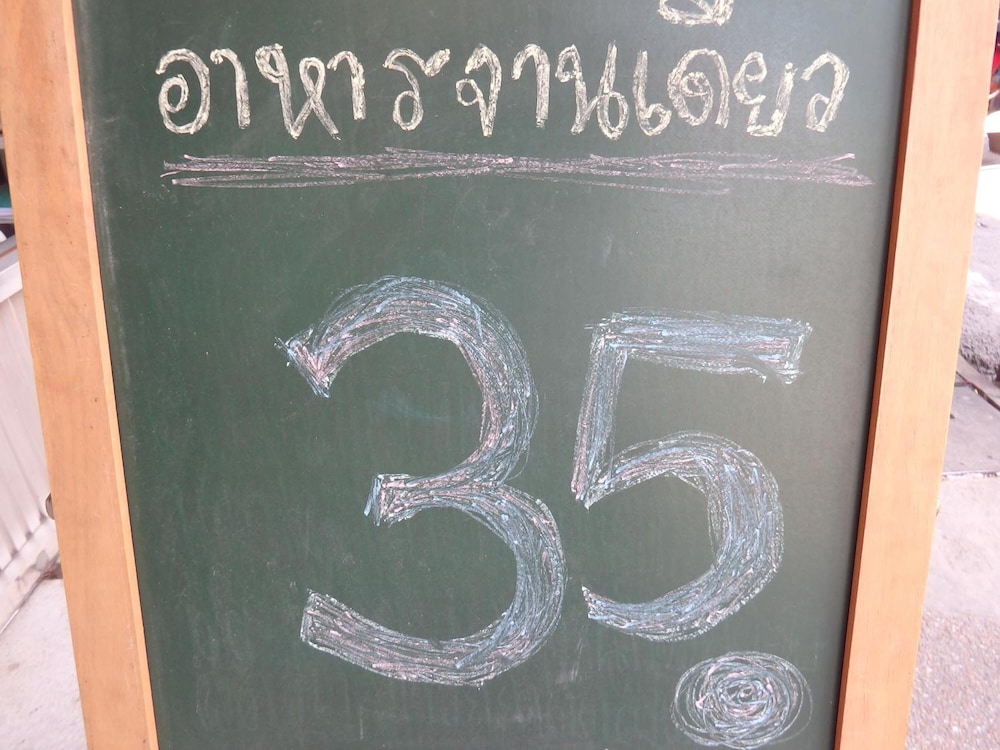 อาหารจานเดียว
35.